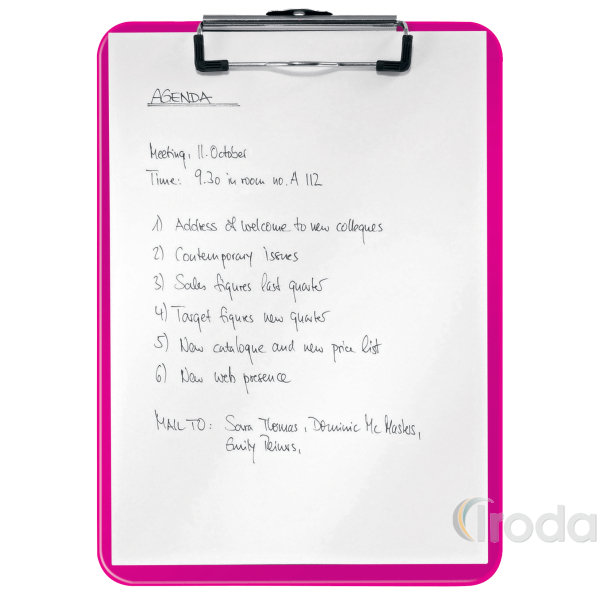 AGENDA
Meeting, 11. October
Time: 9.30 in room no. A 112
1) Address of welcome to new colleques
2) Contemporary Issues
3) Sales figures last quarter
4) Target figures new quarter
5) New catalogue and new price list
6) New web presence
MAIL TO: Sara Thomas, Dominic Mc Masters,
Emily
Iroda